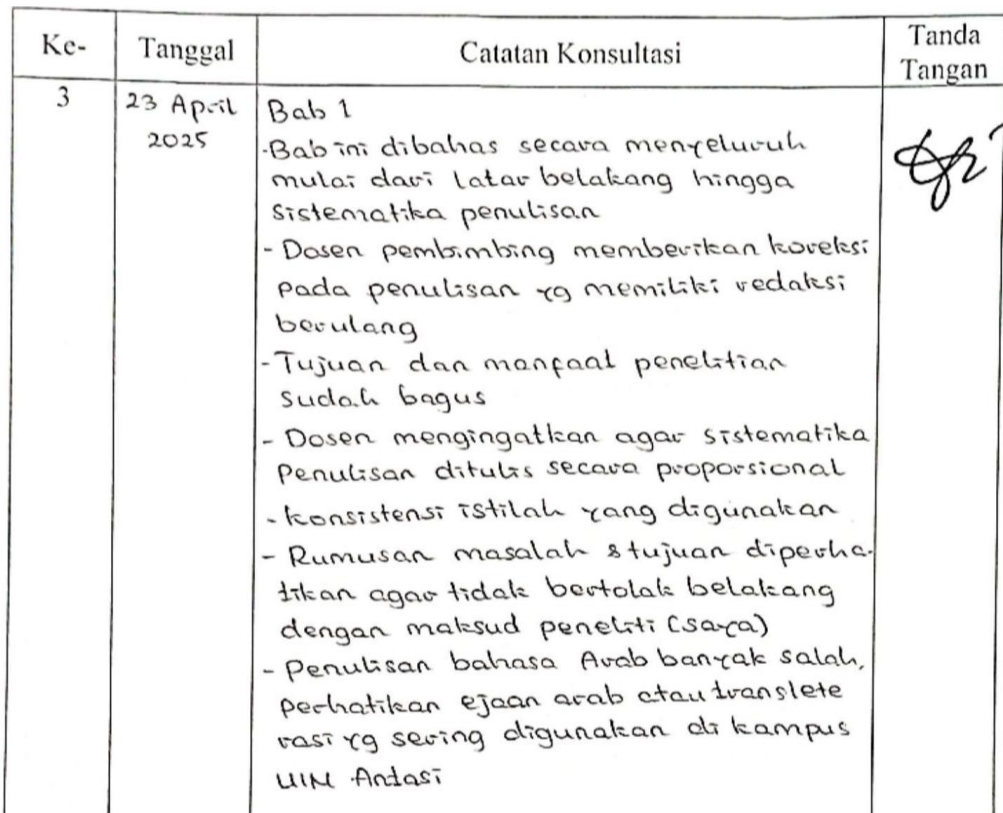 Ke-
Tanggal
Catatan Konsultasi
Tanda
Tangan
3
23 April
2025
Bab 1
-Bab ini dibahas secara menyeluruh
mulai dari latar belakang hingga
sistematika penulisan
- Dosen pembimbing memberikan koreksi
pada penulisan yg memiliki redaksi
berulang
- Tujuan dan manfaat penelitian
sudah bagus
- Dosen mengingatkan agar sistematika
Penulisan ditulis secara proporsional
- konsistensi istilah yang digunakan
- Rumusan masalah & tujuan diperha-
tikan agar tidak bertolak belakang
dengan maksud peneliti (saya)
- Penulisan bahasa Arab banyak salah,
perhatikan ejaan arab atau translete
rasi yg sering digunakan di kampus
UIN Antasi